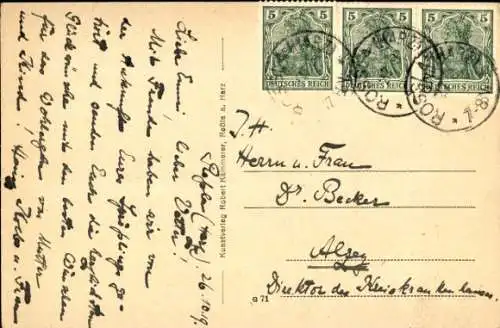 Roßla (Harz) 26.10.19.
Liebe Emmi, lieber Vetter!
Mit Freuden haben wir von
der Ankunft Eures Sprößlings ge-
hört und senden Euch die herzlichsten
Glückwünsche mit den besten Wünschen
für das Wohlergehen von Mutter
und Kind!
Kunstverlag Robert Kümmerer, Roßla a. Harz
G 71
5 5
DEUTSCHES REICH
5 5
DEUTSCHES REICH
5 5
DEUTSCHES REICH
ROSSLA
7-8
I. H.
Herrn u. Frau
Dr. Becker
Alzey
Direktor des Kreiskrankenhauses.